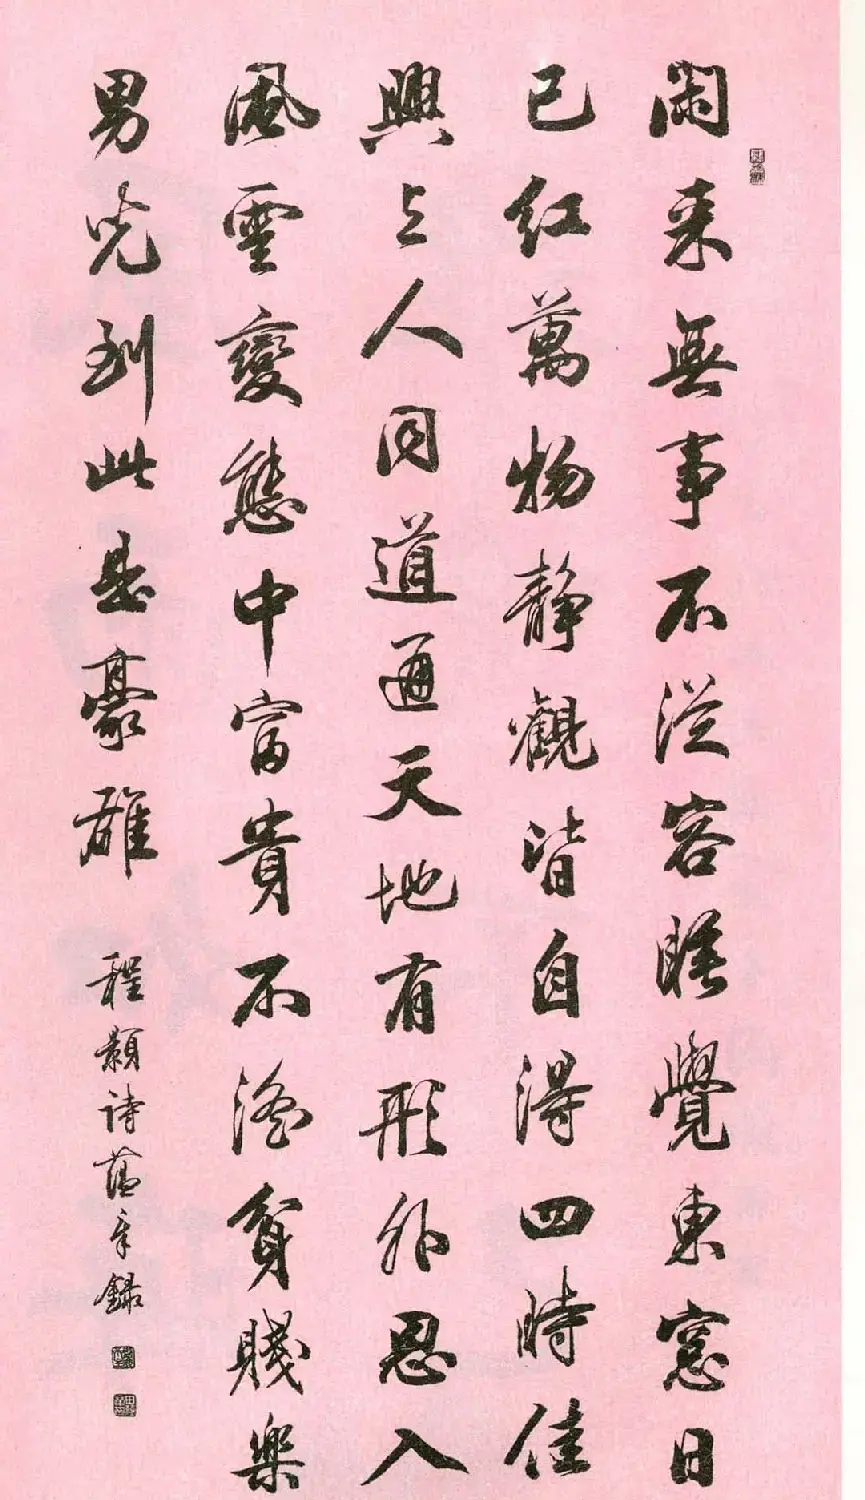 閑来無事不從容睡覺東窓日
已紅萬物静觀皆自得四時佳
興与人同道通天地有形外思入
風雲變態中富貴不淫貧賤樂
男兒到此是豪雄
程顥詩蘊章録